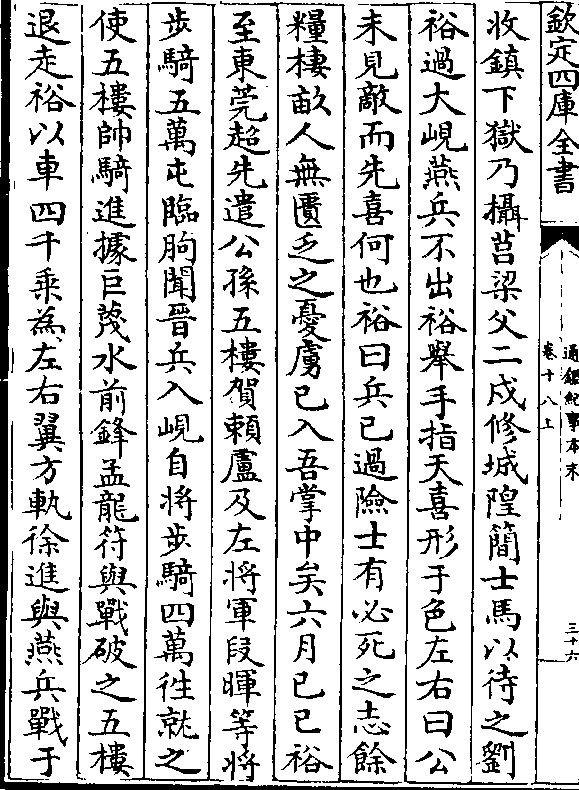 欽定四庫全書
通鑑紀事本末
卷十八上
三十六
收鎮下獄乃攝莒梁父二戍修城隍簡士馬以待之劉
裕過大峴燕兵不出裕舉手指天喜形于色左右曰公
未見敵而先喜何也裕曰兵已過險士有必死之志餘
糧棲畝人無匱乏之憂虜已入吾掌中矣六月己巳裕
至東莞超先遣公孫五樓賀賴盧及左將軍段暉等將
步騎五萬屯臨朐聞晉兵入峴自將步騎四萬徃就之
使五樓帥騎進據巨蔑水前鋒孟龍符與戰破之五樓
退走裕以車四千乘為左右翼方軌徐進與燕兵戰于